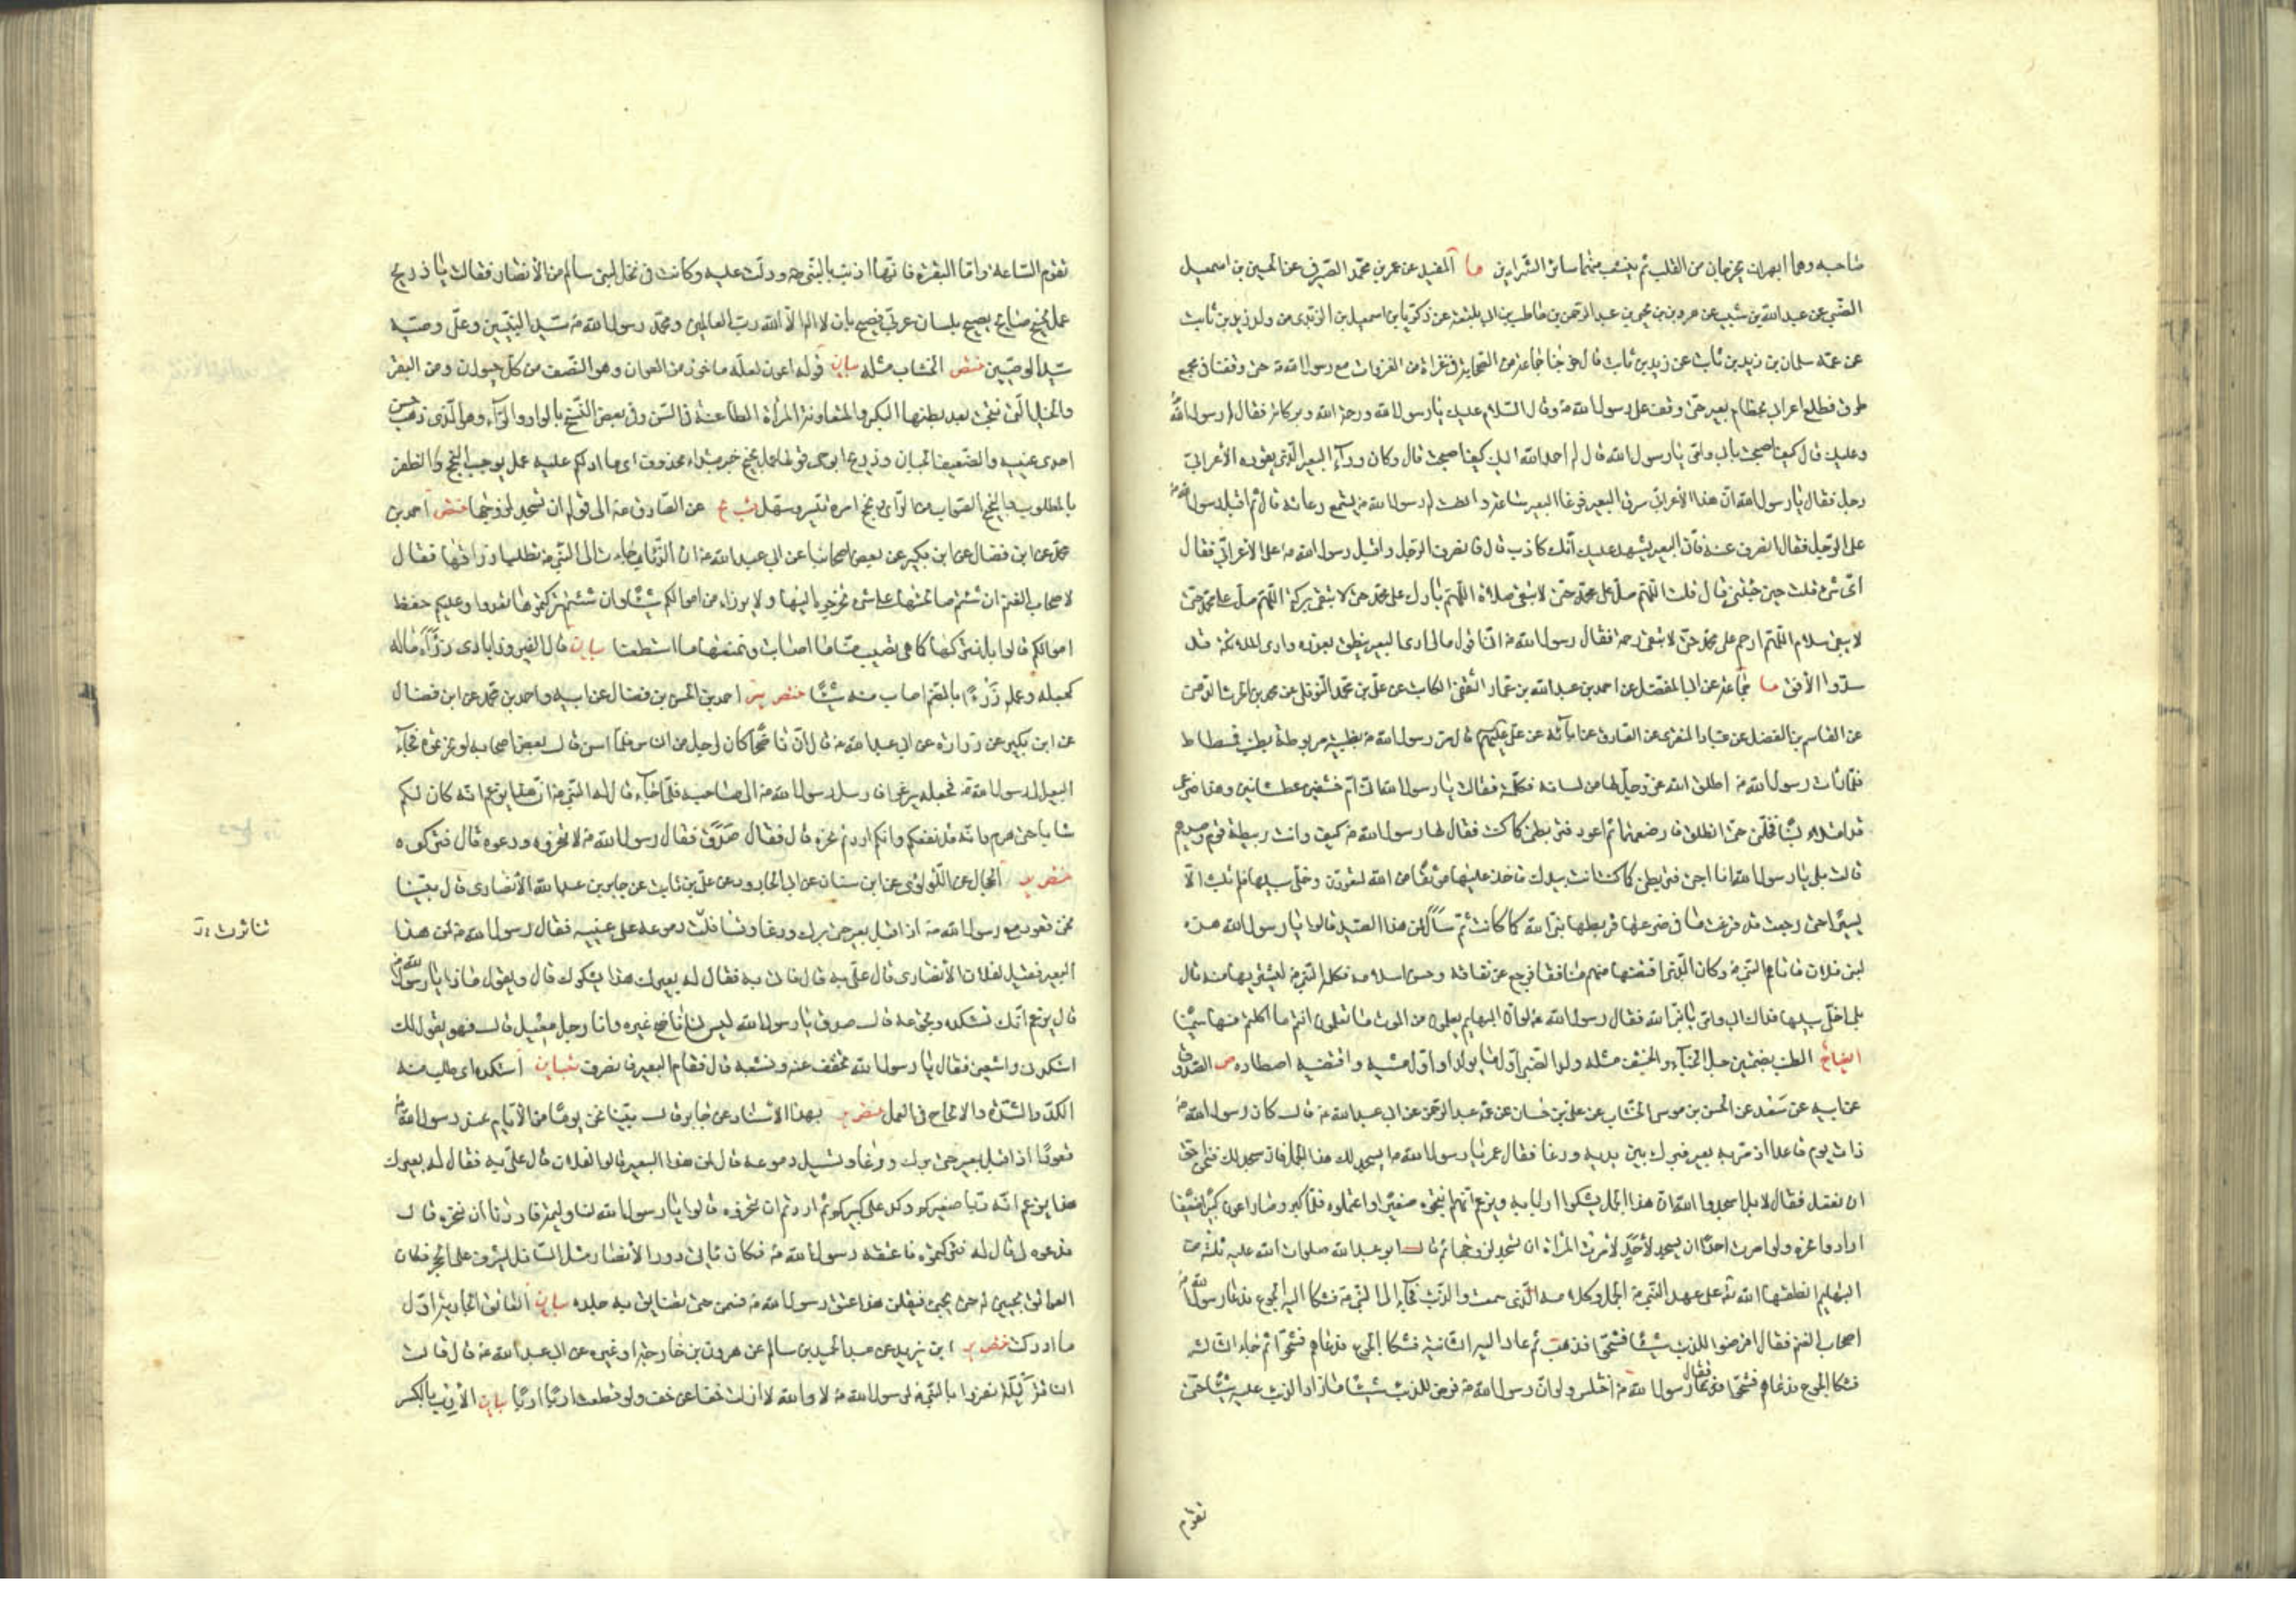 صاحبه وهما ابهران يخرجان من القلب ثم يتشعب منهما سائر الشرايين ما المفيد عن عمر بن محمد الصيرفي عن الحسين بن اسمعيل
الضبي عن عبد الله بن شبيب عن هرون بن يحيى بن عبد الرحمن بن حاطب بن ابي بلتعة عن زكريا بن اسمعيل بن الزيدي من ولد زيد بن ثابت
عن عمه سلمان بن زيد بن ثابت عن زيد بن ثابت قال خرجنا جماعة من الصحابة في غزاة من الغزوات مع رسول الله ص حتى وقفنا في مجمع
طرق فطلع اعرابي بخطام بعير حتى وقف على رسول الله ص وقال السلام عليك يا رسول الله ورحمة الله وبركاته فقال له رسول الله
وعليك قال كيف اصبحت بابي وامي يا رسول الله قال له احمد الله اليك كيف اصبحت قال وكان وراء البعير الذي يقوده الأعرابي
رجل فقال يا رسول الله ان هذا الأعرابي سرق البعير فرغا البعير ساعة وانصت له رسول الله ص يستمع رغائه قال ثم اقبل رسول الله ص
على الرجل فقال انصرف عنه فان البعير يشهد عليك انك كاذب قال فانصرف الرجل واقبل رسول الله ص على الأعرابي فقال
اي شيء قلت حين جئتني قال قلت اللهم صل على محمد حتى لا تبقى صلاة اللهم بارك على محمد حتى لا تبقى بركة اللهم سلم على محمد حتى
لا يبقى سلام اللهم ارحم على محمد حتى لا تبقى رحمة فقال رسول الله ص اني اقول ما لي ارى البعير ينطق بعذره وارى الملائكة قد
سدوا الأفق ما جماعة عن ابي المفضل عن احمد بن عبد الله بن عمار الثقفي الكاتب عن علي بن محمد النوفلي عن محمد بن الحرث الدهني
عن القاسم بن الفضل عن عباد المنقري عن الصادق عن ابائه عن علي عليهم قال مر رسول الله ص بظبية مربوطة بطنب فسطاط
فلما رات رسول الله ص اطلق الله عز وجل لها من لسانه فكلمته فقالت يا رسول الله اني ام خشفين عطشانين وهذا ضرعي
قد امتلا لبنا فخلني حتى انطلق فارضعهما ثم اعود فتربطني كما كنت فقال لها رسول الله ص كيف وانت ربيطة قوم وصيدهم
قالت بلى يا رسول الله انا اجيء فتربطني كما كنت انت بيدك فاخذ عليها موثقا من الله لتعودن وخلى سبيلها فلم تلبث الا
يسيرا حتى رجعت قد فرغت ما في ضرعها فربطها نبي الله كما كانت ثم سأل لمن هذا الصيد قالوا يا رسول الله هذه
لبني فلان فاتاهم النبي ص وكان الذي اقتنصها منهم منافقا فرجع عن نفاقه وحسن اسلامه فكلمه النبي ص ليشتريها منه قال
بلى اخلي سبيلها فداك ابي وامي يا نبي الله فقال رسول الله ص لو ان البهايم يعلمون من الموت ما تعلمون انتم ما اكلتم منها سمينا
ايضاح الطنب بضمتين حبل الخباء والخشف مثلثة ولد الظبي اول ما يولد او اول مشيه واقتنصه اصطاده ص الصدوق
عن ابيه عن سعد عن الحسن بن موسى الخشاب عن علي بن حسان عن عمه عبد الرحمن عن ابي عبد الله ع قال كان رسول الله ص
ذات يوم قاعدا اذ مر به بعير فبرك بين يديه ورغا فقال عمر يا رسول الله ايسجد لك هذا الجمل فان سجد لك فنحن احق
ان نفعل فقال لا بل اسجدوا لله ان هذا الجمل يشكوا اربابه ويزعم انهم انتجوه صغيرا واعتملوه فلما كبر وصار اعون كبيرا ضعيفا
ارادوا نحره ولو امرت احدا ان يسجد لأحد لأمرت المرأة ان تسجد لزوجها ثم قال ابو عبد الله صلوات الله عليه ثلثة من
البهايم انطقها الله تعالى على عهد النبي ص الجمل وكلامه الذي سمعت والذئب فجاء الى النبي ص فشكا اليه الجوع فدعا رسول الله ص
اصحاب الغنم فقال افرضوا للذئب شيئا فشحوا فذهب ثم عاد اليه الثانية فشكا الجوع فدعاهم فشحوا ثم جاء الثالثة
فشكا الجوع فدعاهم فشحوا فقال رسول الله ص اختلس ولو ان رسول الله ص فرض للذئب شيئا ما زاد الذئب عليه شيئا حتى
تقوم
تقوم الساعة واما البقرة فانها اذنت بالنبي ص ودلت عليه وكانت في نخل لبني سالم من الأنصار فقالت يا ذريح
عمل نجيح صايح يصيح بلسان عربي فصيح بان لا اله الا الله رب العالمين ومحمد رسول الله ص سيد النبيين وعلي وصيه
سيد الوصيين ختص الخشاب مثله بيان قوله اعون لعله ماخوذ من العوان وهو النصف من كل حيوان ومن البقر
والخيل التي نتجت بعد بطنها البكر والمتعاونة المرأة الطاعنة في السن وفي بعض النسخ بالواو والراء وهو الذي ذهب حس
احدى عينيه والضعيف الجبان وذريح ابو حي قولها عمل نجيح خبر مبتداء محذوف اي ما ادلكم عليه عمل يوجب النجح والظفر
بالمطلوب والنجيح الصواب من الرأي ونجح امره تيسر وسهل عن الصادق ع الى قوله ان تسجد لزوجها ختص احمد بن
محمد عن ابن فضال عن ابن بكير عن بعض اصحابنا عن ابي عبد الله ع ان الذئاب جاءت الى النبي ص تطلب ارزاقها فقال
لاصحاب الغنم ان شئتم صالحتها على شيء تخرجوه اليها ولا يرزاء من اموالكم شيئا وان شئتم تركتموها تعدوا وعليكم حفظ
اموالكم قالوا بل نتركها كما هي تصيب منا ما اصابت ونمنعها ما استطعنا بيان قال الفيروزابادي رزأه ماله
كجعله وعلمه رزءا بالضم اصاب منه شيئا ختص ير احمد بن الحسن بن فضال عن ابيه واحمد بن محمد عن ابن فضال
عن ابن بكير عن زرارة عن ابي عبد الله ع قال ان ناضحا كان لرجل من الناس فلما اسن قال بعض اصحابه لو نحرتموه فجاء
البعير الى رسول الله ص فجعل يرغو فارسل رسول الله ص الى صاحبه فلما جاء قال له النبي ص ان هذا يزعم انه كان لكم
شابا حتى هرم وانه قد نفعكم وانكم اردتم نحره قال فقال صدق فقال رسول الله ص لا تنحروه ودعوه قال فتركوه
ختص ير الحجال عن اللؤلؤي عن ابن سنان عن ابي الجارود عن علي بن ثابت عن جابر بن عبد الله الأنصاري قال بينا
نحن قعود مع رسول الله ص اذ اقبل بعير حتى برك ورغا وتسافلت دموعه على عينيه فقال رسول الله ص لمن هذا
البعير فقيل لفلان الأنصاري قال علي به قال فاتي به فقال له بعيرك هذا يشكوك قال ويقول ماذا يا رسول الله ص
قال يزعم انك تستكده وتجوعه قال صدق يا رسول الله ليس لنا ناضح غيره وانا رجل معيل قال فهو يقول لك
استكدني واشبعني فقال يا رسول الله نخفف عنه ونشبعه قال فقام البعير فانصرف بيان استكده اي طلب منه
الكد والشدة والالحاح في العمل ختص ير بهذا الاسناد عن جابر قال بينا نحن يوما من الأيام عند رسول الله ص
قعودا اذ اقبل بعير حتى برك ورغا وتسيل دموعه قال لمن هذا البعير قالوا لفلان قال علي به فقال له بعيرك
هذا يزعم انه ربا صغيركم وكد على كبيركم ثم اردتم ان تنحروه قالوا يا رسول الله لنا وليمة فاردنا ان ننحره قال
فدعوه لي قال فتركوه فاعتقه رسول الله ص فكان ياتي دور الأنصار مثل السائل يشرف على الحجر فكان
العواتق يجبين له حتى يجيء فيقلن هذا عتيق رسول الله ص فسمن حتى تضايق به جلده بيان العاتق الجارية اول
ما ادركت ختص ير ابن يزيد عن عبد الحميد بن سالم عن هرون بن خارجة او غيره عن ابي عبد الله ع قال قالت
الناقة ليلة نفروا بالنبي ص لرسول الله ص لا والله لا ازلت خفا عن خف ولو قطعت اربا اربا بيان الأرب بالكسر
تناثرت